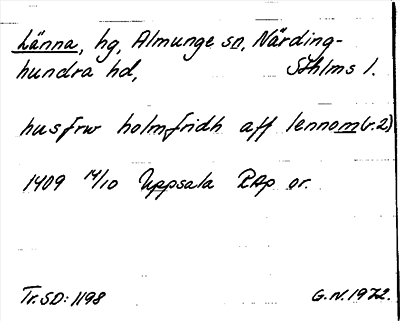 Länna, hg, Almunge sn, Närding-
hundra hd, Sthlms l.
husfrw holmfridh aff lennom (r.2)
1409 14/10 Uppsala RAp or.
Tr. SD: 1198 G.N. 1972.